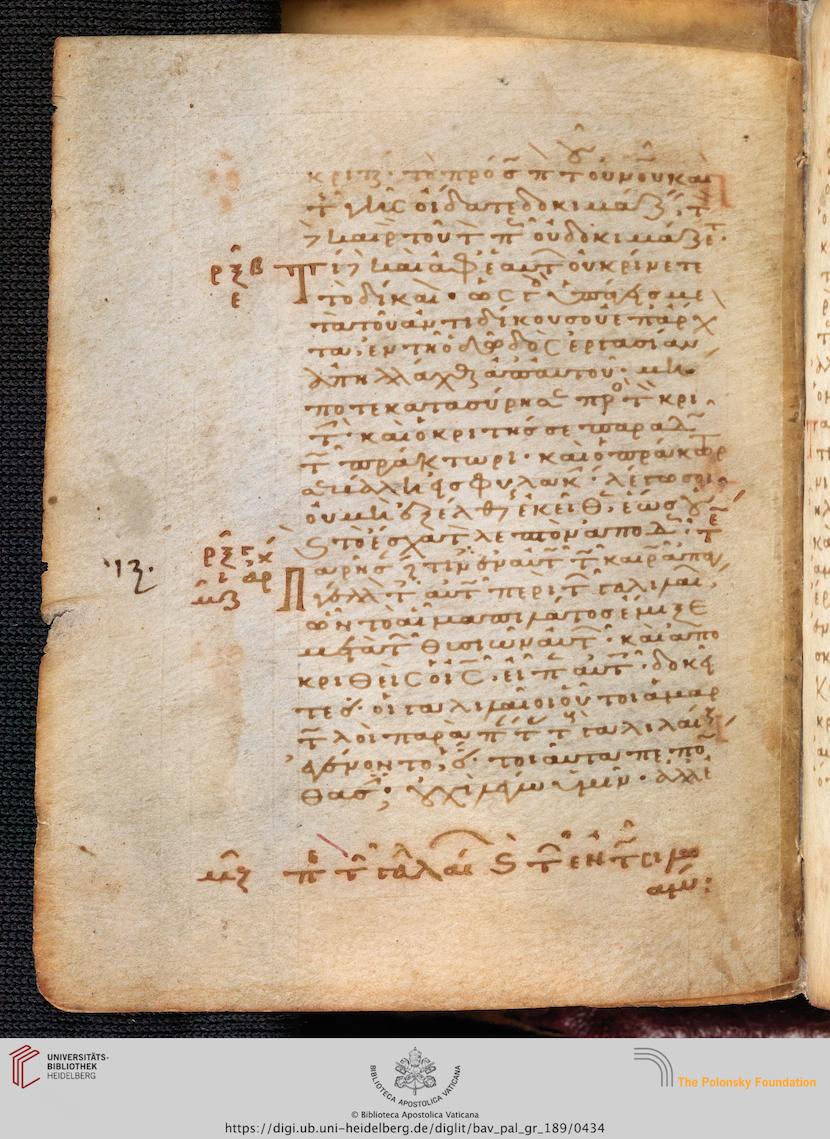 κριταί· τὸ πρόσωπον τοῦ οὐνοῦ καὶ
τῆς γῆς οἴδατε δοκιμάζειν· τὸν
καιρὸν τοῦτον πῶς οὐ δοκιμάζετε·
ρξβ
ε
Τί καὶ ἀφ' ἑαυτῶν οὐ κρίνετε
τὸ δίκαιον· ὡς γὰρ ὑπάγεις με
τὰ τοῦ ἀντιδίκου σου ἐπ' ἄρχον
τα, ἐν τῇ ὁδῷ δὸς ἐργασίαν
ἀπηλλάχθαι ἀπ' αὐτοῦ· μή
ποτε κατασύρῃ σε πρὸς τὸν κρι
τήν· καὶ ὁ κριτής σε παραδῷ
τῷ πράκτορι· καὶ ὁ πράκτωρ
σε βάλῃ εἰς φυλακήν· λέγω σοι
οὐ μὴ ἐξέλθῃς ἐκεῖθεν, ἕως οὗ
καὶ τὸ ἔσχατον λεπτὸν ἀποδῷς·
ρξγ
ι
μζ
Παρῆσαν δέ τινες ἐν αὐτῷ τῷ καιρῷ ἀπαγ
γέλλοντες αὐτῷ περὶ τῶν γαλιλαίων
ὧν τὸ αἷμα πιλάτος ἔμιξε
μετὰ τῶν θυσιῶν αὐτῶν· καὶ ἀπο
κριθεὶς ὁ ις εἶπεν αὐτοῖς· δοκεῖ
τε ὅτι οἱ γαλιλαῖοι οὗτοι ἁμαρ
τωλοὶ παρὰ πάντας τοὺς γαλιλαίους
ἐγένοντο, ὅτι τοιαῦτα πεπόν
θασιν; οὐχί λέγω ὑμῖν· ἀλλ' ἐ
μζ περὶ τῶν γαλιλαίων καὶ τῶν ἐν τῷ σιλω
αμ:
UNIVERSITÄTS-
BIBLIOTHEK
HEIDELBERG
BIBLIOTECA APOSTOLICA VATICANA
The Polonsky Foundation
© Biblioteca Apostolica Vaticana
https://digi.ub.uni-heidelberg.de/diglit/bav_pal_gr_189/0434